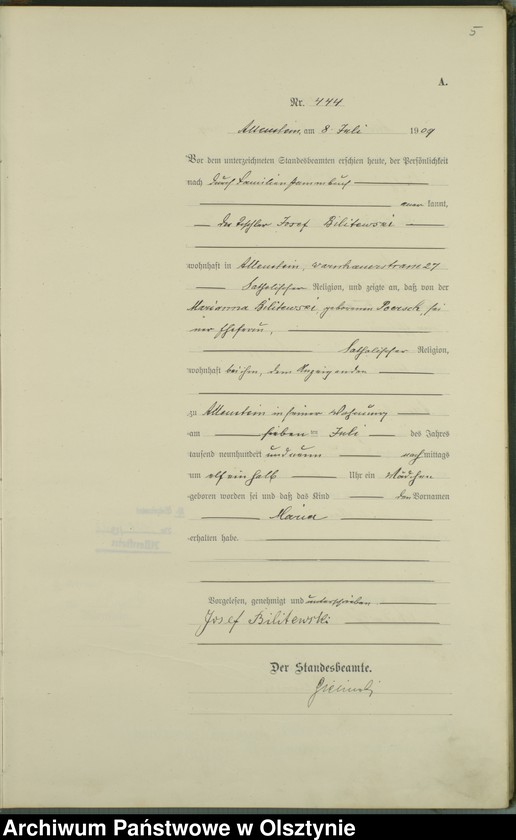 5
A.
Nr. 444
Allenstein, am 8 Juli 1909
Vor dem unterzeichneten Standesbeamten erschien heute, der Persönlichkeit
nach durch Familienstammbuch
aner kannt,
der Tischler Josef Bilitewski
wohnhaft in Allenstein, 27
katholischer Religion, und zeigte an, daß von der
Marianna Bilitewski geborenen Poersch, sei
ner Ehefrau,
katholischer Religion,
wohnhaft bei ihm, dem Anzeigenden
zu Allenstein in seiner Wohnung
am sieben ten Juli des Jahres
tausend neunhundert und neun nach mittags
um elf einhalb Uhr ein Mädchen
geboren worden sei und daß das Kind den Vornamen
Maria
erhalten habe.
Vorgelesen, genehmigt und unterschrieben
Josef Bilitewski
Der Standesbeamte.
Archiwum Państwowe w Olsztynie